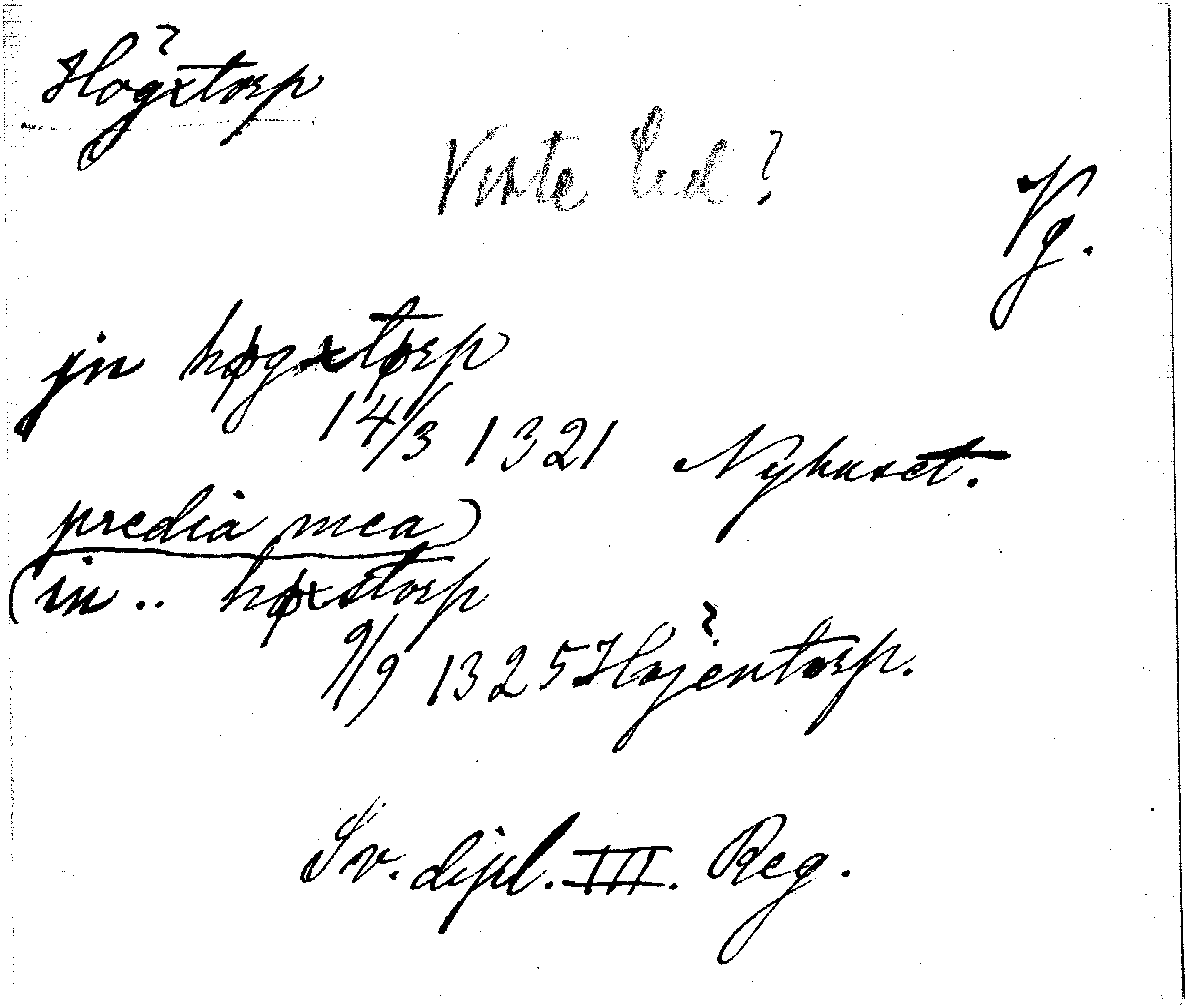 Högxtorp
Vinte Led?
Vg.
jn høgxtørp
14/3 1321 Nyhuset.
predia mea)
(in .. høxstorp
9/9 1325 Höjentorp.
Sv. dipl. III. Reg.